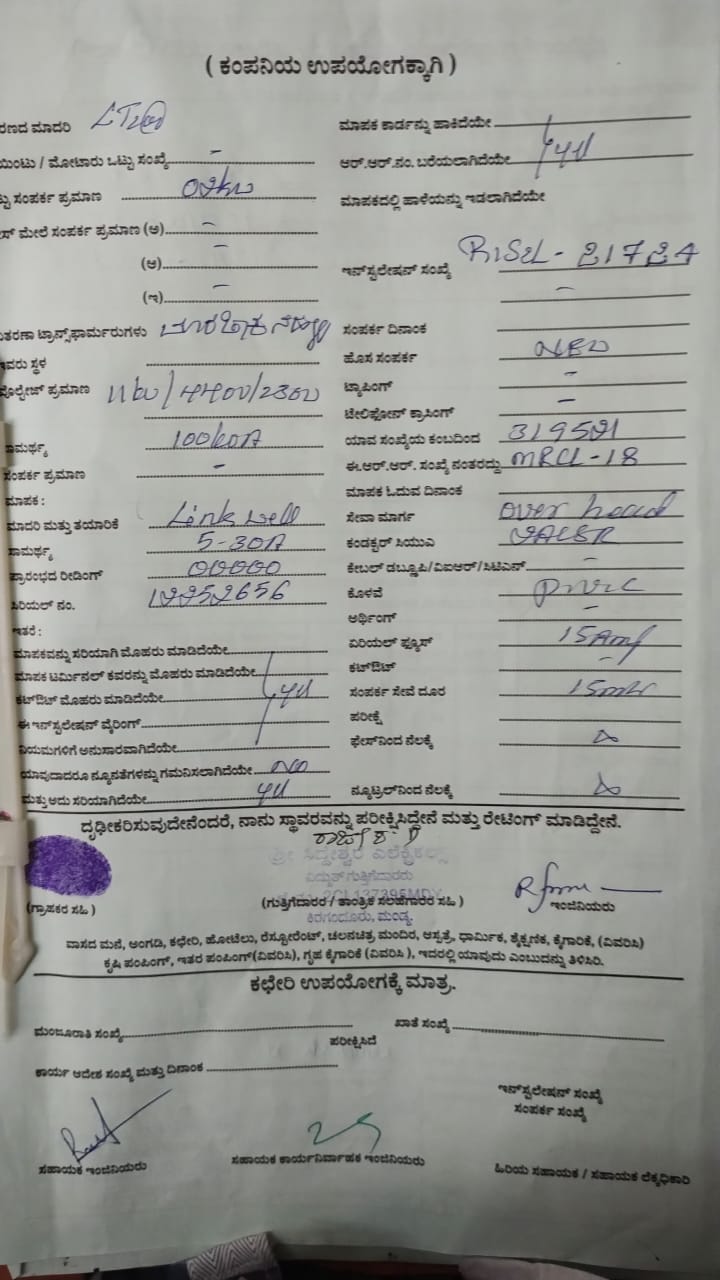 ( ಕಂಪನಿಯ ಉಪಯೋಗಕ್ಕಾಗಿ )
ರಣದ ಮಾದರಿ LT2
ಮಾಪಕ ಕಾರ್ಡನ್ನು ಹಾಕಿದೆಯೇ
ಯಿಂಟು / ಮೋಟಾರು ಒಟ್ಟು ಸಂಖ್ಯೆ -
ಆರ್.ಆರ್.ನಂ. ಬರೆಯಲಾಗಿದೆಯೇ
ಟ್ಟು ಸಂಪರ್ಕ ಪ್ರಮಾಣ
ಮಾಪಕದಲ್ಲಿ ಹಾಳೆಯನ್ನು ಇಡಲಾಗಿದೆಯೇ
ಸ್ ಮೇಲೆ ಸಂಪರ್ಕ ಪ್ರಮಾಣ (ಅ) -
(ಆ) -
ಇನ್‌ಸ್ಟಲೇಷನ್ ಸಂಖ್ಯೆ
(ಇ) -
-
ತರಣಾ ಟ್ರಾನ್ಸ್‌ಫಾರ್ಮರುಗಳು
ಸಂಪರ್ಕ ದಿನಾಂಕ
ಇವರು ಸ್ಥಳ
ಹೊಸ ಸಂಪರ್ಕ NEW
ವೋಲ್ಟೇಜ್ ಪ್ರಮಾಣ
ಟ್ಯಾಪಿಂಗ್ -
ಟೆಲಿಫೋನ್ ಕ್ರಾಸಿಂಗ್ -
ಸಾಮರ್ಥ್ಯ 100
ಯಾವ ಸಂಖ್ಯೆಯ ಕಂಬದಿಂದ
ಸಂಪರ್ಕ ಪ್ರಮಾಣ -
ಈ.ಆರ್.ಆರ್. ಸಂಖ್ಯೆ ನಂತರದ್ದು MRCL-18
ಮಾಪಕ :
ಮಾಪಕ ಓದುವ ದಿನಾಂಕ
ಮಾದರಿ ಮತ್ತು ತಯಾರಿಕೆ Linkwell
ಸೇವಾ ಮಾರ್ಗ over head
ಸಾಮರ್ಥ್ಯ 5-30A
ಕಂಡಕ್ಟರ್ ಸಿಯುಎ
ಪ್ರಾರಂಭದ ರೀಡಿಂಗ್ 00000
ಕೇಬಲ್ ಡಬ್ಲೂಪಿ/ವಿಐಆರ್/ಸಿಟಿಎಸ್ -
ಸಿರಿಯಲ್ ನಂ.
ಕೊಳವೆ
ಇತರೆ :
ಅರ್ಥಿಂಗ್ -
ಮಾಪಕವನ್ನು ಸರಿಯಾಗಿ ಮೊಹರು ಮಾಡಿದೆಯೇ
ಏರಿಯಲ್ ಫ್ಯೂಸ್ 15Amp
ಮಾಪಕ ಟರ್ಮಿನಲ್ ಕವರನ್ನು ಮೊಹರು ಮಾಡಿದೆಯೇ
ಕಟ್‌ಔಟ್ -
ಕಟ್‌ಔಟ್ ಮೊಹರು ಮಾಡಿದೆಯೇ
ಸಂಪರ್ಕ ಸೇವೆ ದೂರ 15mtr
ಈ ಇನ್‌ಸ್ಟಲೇಷನ್ ವೈರಿಂಗ್
ಪರೀಕ್ಷೆ
ನಿಯಮಗಳಿಗೆ ಅನುಸಾರವಾಗಿದೆಯೇ
ಫೇಸ್‌ನಿಂದ ನೆಲಕ್ಕೆ
ಯಾವುದಾದರೂ ನ್ಯೂನತೆಗಳನ್ನು ಗಮನಿಸಲಾಗಿದೆಯೇ No
ಮತ್ತು ಅದು ಸರಿಯಾಗಿದೆಯೇ
ನ್ಯೂಟ್ರಲ್‌ನಿಂದ ನೆಲಕ್ಕೆ
ದೃಢೀಕರಿಸುವುದೇನೆಂದರೆ, ನಾನು ಸ್ಥಾವರವನ್ನು ಪರೀಕ್ಷಿಸಿದ್ದೇನೆ ಮತ್ತು ರೇಟಿಂಗ್ ಮಾಡಿದ್ದೇನೆ.
ಶ್ರೀ ಸಿದ್ದೇಶ್ವರ ಎಲೆಕ್ಟ್ರಿಕಲ್ಸ್
ವಿದ್ಯುತ್ ಗುತ್ತಿಗೆದಾರರು
(ಗ್ರಾಹಕರ ಸಹಿ )
(ಗುತ್ತಿಗೆದಾರರ / ತಾಂತ್ರಿಕ ಸಲಹೆಗಾರರ ಸಹಿ )
ಇಂಜಿನಿಯರು
ಕಿರಗಂದೂರು, ಮಂಡ್ಯ.
ವಾಸದ ಮನೆ, ಅಂಗಡಿ, ಕಛೇರಿ, ಹೋಟೆಲು, ರೆಸ್ಟೋರೆಂಟ್, ಚಲನಚಿತ್ರ ಮಂದಿರ, ಆಸ್ಪತ್ರೆ, ಧಾರ್ಮಿಕ, ಶೈಕ್ಷಣಿಕ, ಕೈಗಾರಿಕೆ, (ವಿವರಿಸಿ)
ಕೃಷಿ ಪಂಪಿಂಗ್, ಇತರ ಪಂಪಿಂಗ್(ವಿವರಿಸಿ), ಗೃಹ ಕೈಗಾರಿಕೆ (ವಿವರಿಸಿ ), ಇದರಲ್ಲಿ ಯಾವುದು ಎಂಬುದನ್ನು ತಿಳಿಸಿರಿ.
ಕಛೇರಿ ಉಪಯೋಗಕ್ಕೆ ಮಾತ್ರ.
ಮಂಜೂರಾತಿ ಸಂಖ್ಯೆ
ಖಾತೆ ಸಂಖ್ಯೆ
ಪರೀಕ್ಷಿಸಿದೆ
ಕಾರ್ಯ ಆದೇಶ ಸಂಖ್ಯೆ ಮತ್ತು ದಿನಾಂಕ
ಇನ್‌ಸ್ಟಲೇಷನ್ ಸಂಖ್ಯೆ
ಸಂಪರ್ಕ ಸಂಖ್ಯೆ
ಸಹಾಯಕ ಇಂಜಿನಿಯರು
ಸಹಾಯಕ ಕಾರ್ಯನಿರ್ವಾಹಕ ಇಂಜಿನಿಯರು
ಹಿರಿಯ ಸಹಾಯಕ / ಸಹಾಯಕ ಲೆಕ್ಕಧಿಕಾರಿ